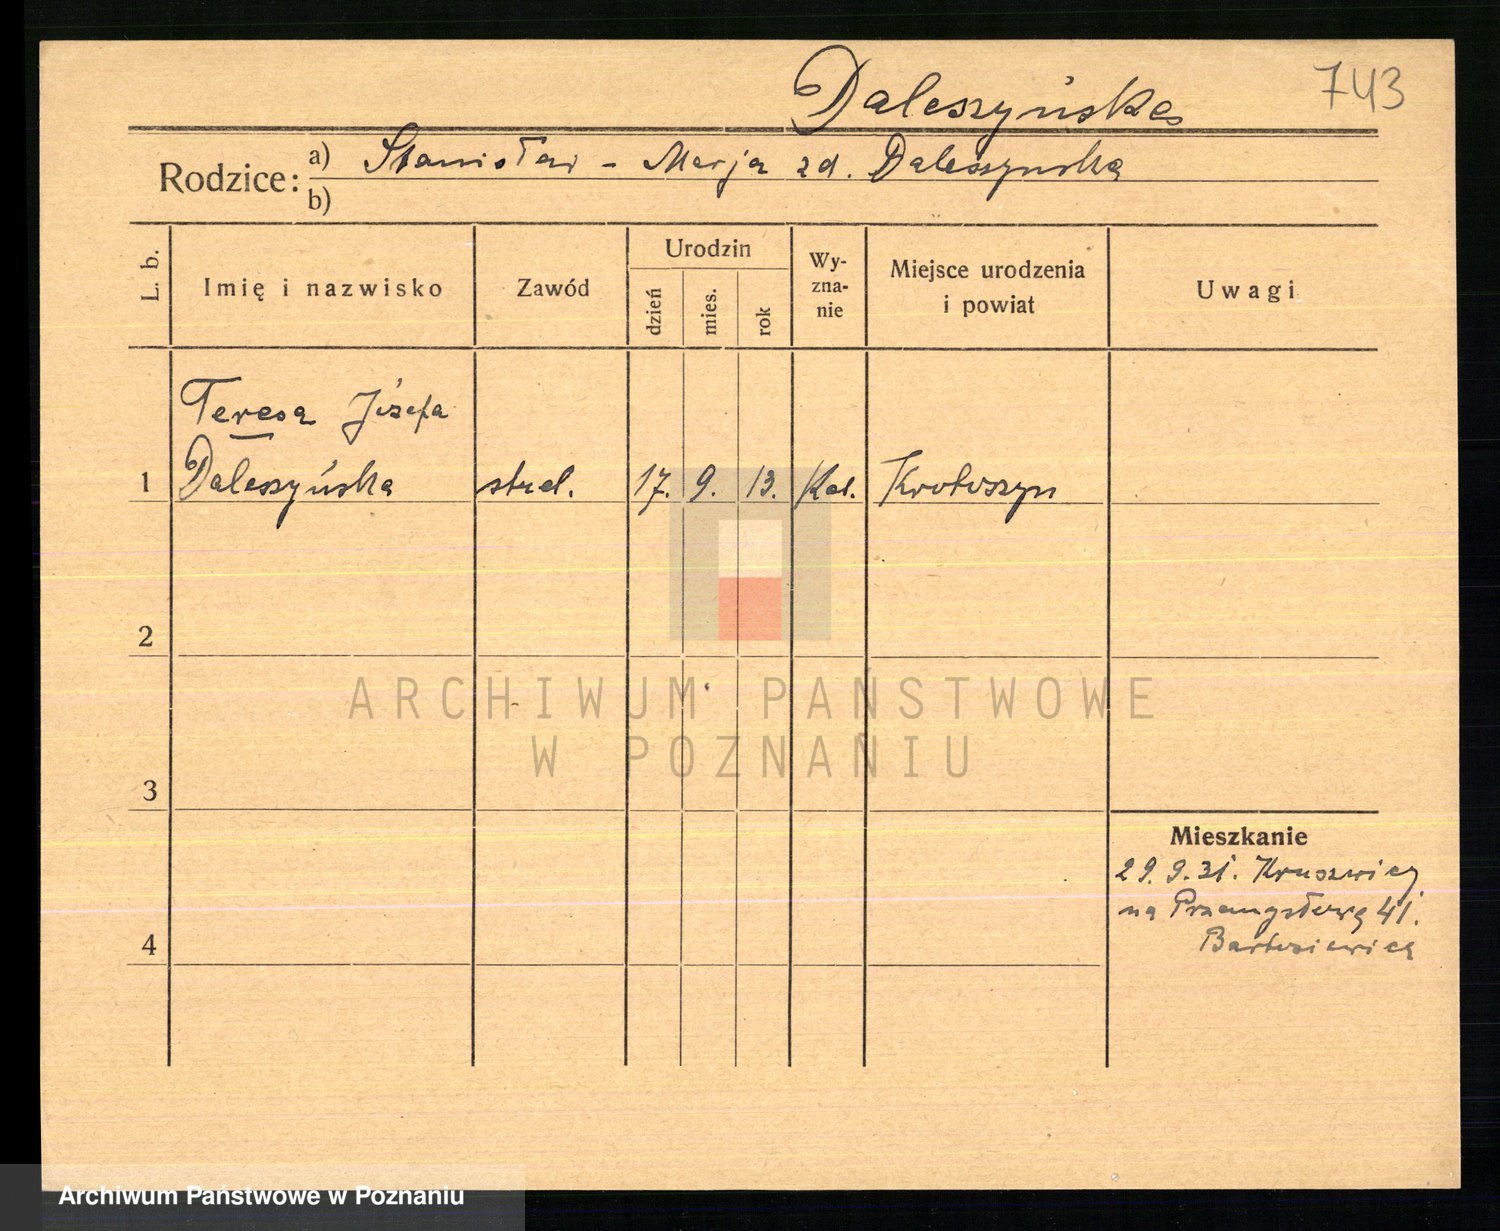 Daleszyńska
743
Rodzice: a) Stanisław - Marja zd. Daleszyńska
b)
L. b.
Imię i nazwisko
Zawód
Urodzin
dzień
mies.
rok
Wy-
zna-
nie
Miejsce urodzenia
i powiat
Uwagi
Teresa Józefa
1 Daleszyńska stud. 17. 9. 13. Kat. Krotoszyn
2
ARCHIWUM PAŃSTWOWE
W POZNANIU
3
Mieszkanie
29. 9. 31. Kruszwicy
na Przemysłową 41.
4
Archiwum Państwowe w Poznaniu